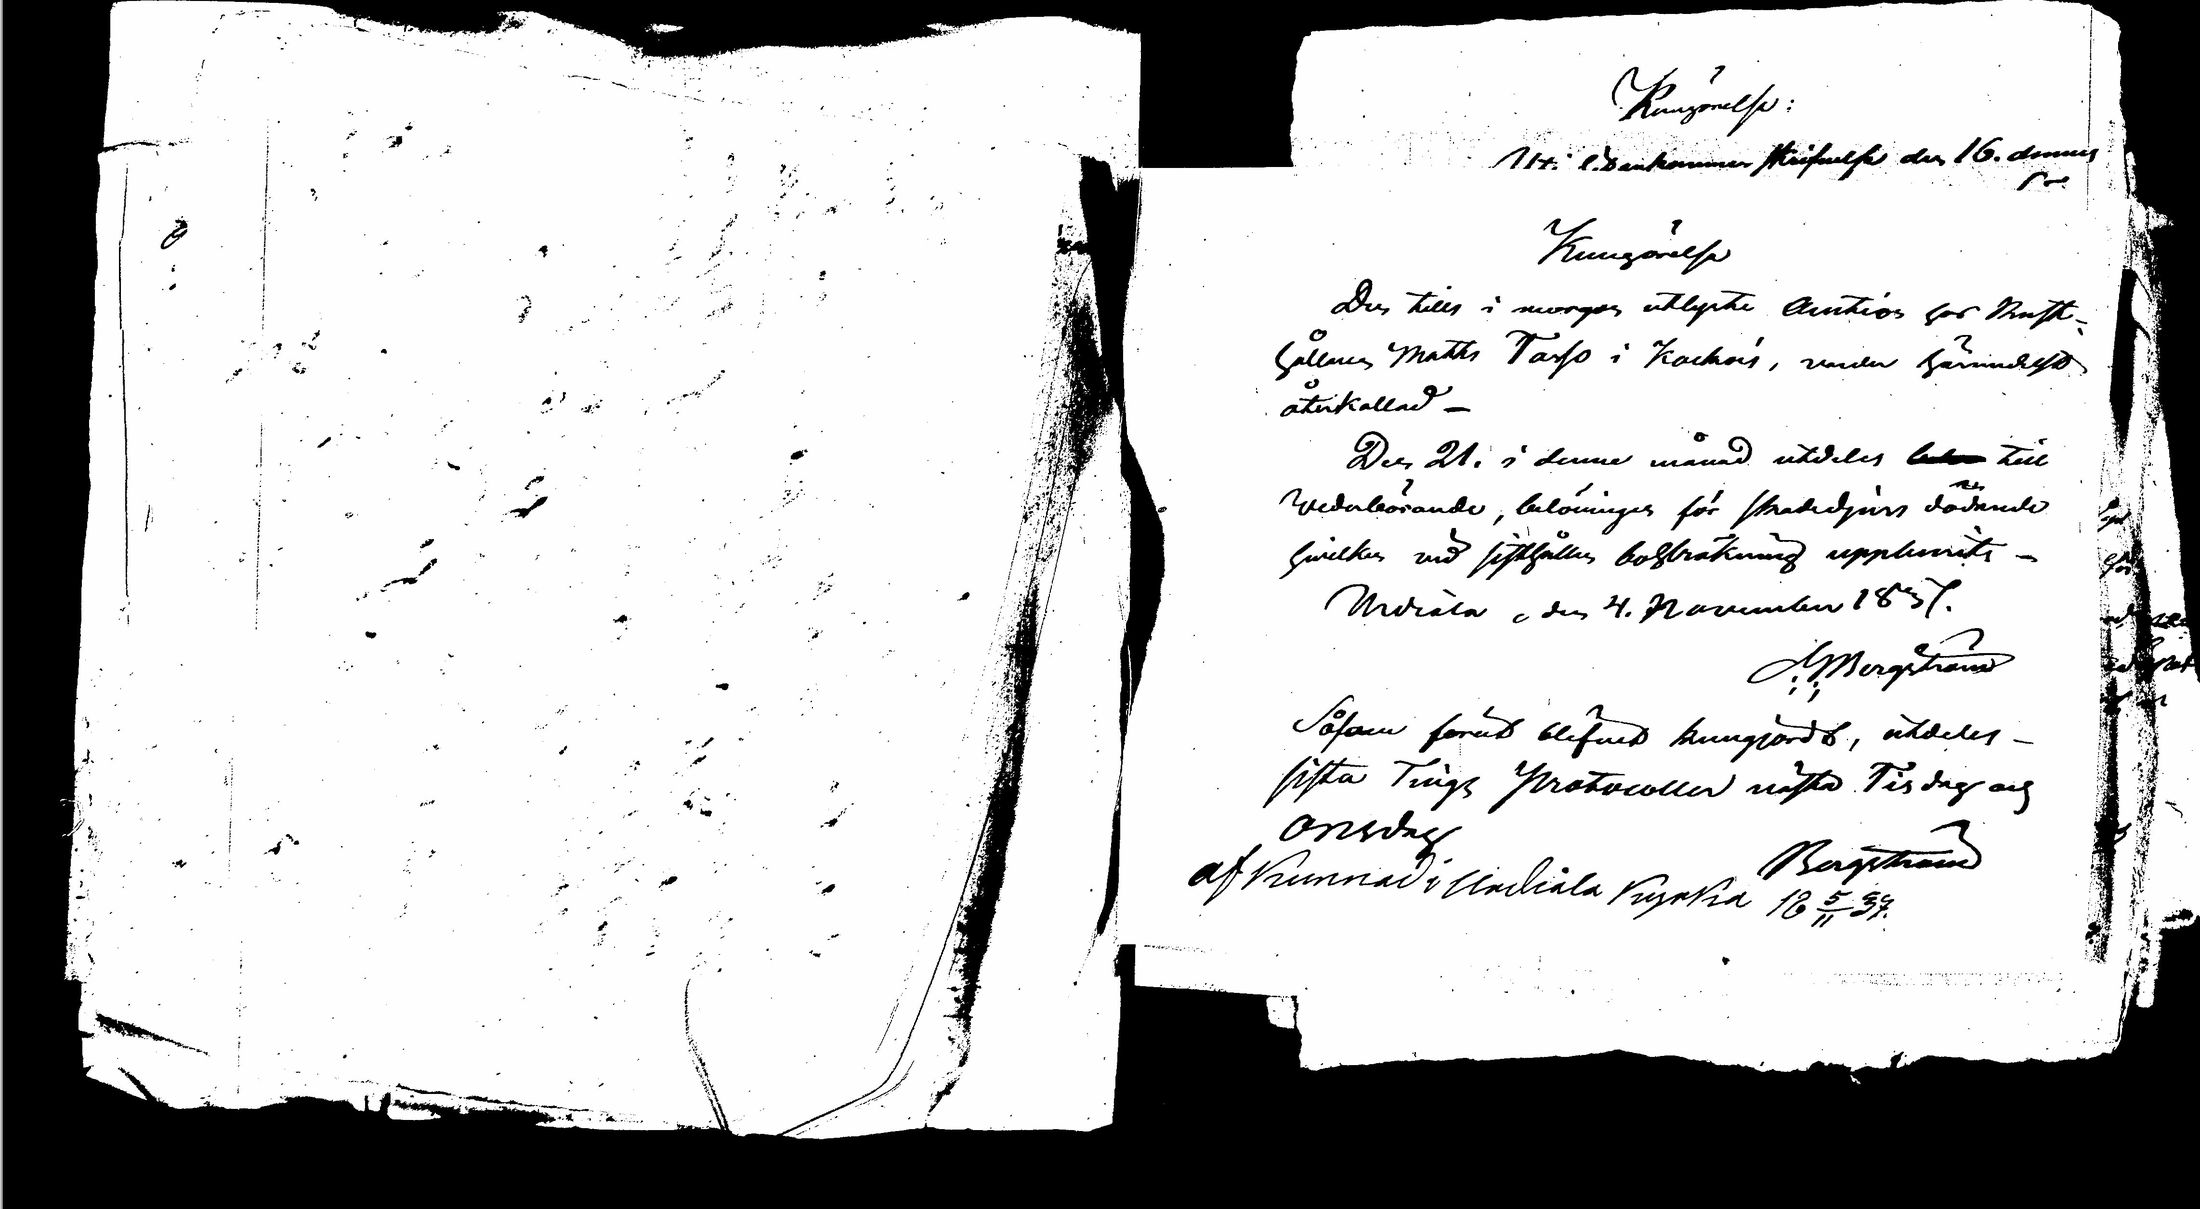 Kungörelse:
Uti ankommen skrifvelse den 16. dennes
Kungörelse
Den till i morgon utlyste Auction hos Rust-
hållaren Matts Tarso i Kockois, varder härmedelst
återkallad –
Den 21. i denne månad utdeles till
Wederbörande, belöningen för skadedjurs dödande
hvilken vid sisthållne bolsträkning uppburits –
Urdiala, den 4. November 1837.
Bergstråmd
Såsom förut blifvit kungjordt, utdeles –
sista Tings Protocoller nästa Tisdag och
Onsdag
Bergstråmd
af Kunnad i Urdiala Kyrka 18 5/11 37.